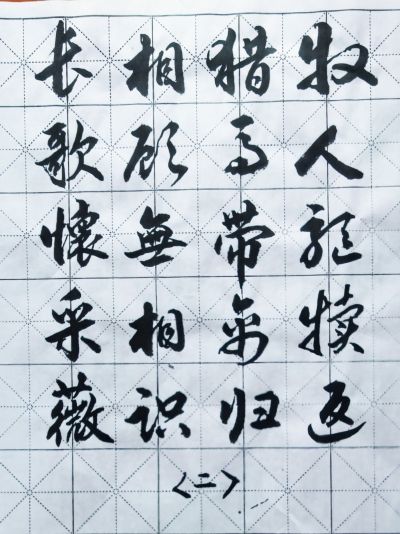 牧人驱犢返
猎马帶禽归
相顾無相识
长歌懷采薇
<二>